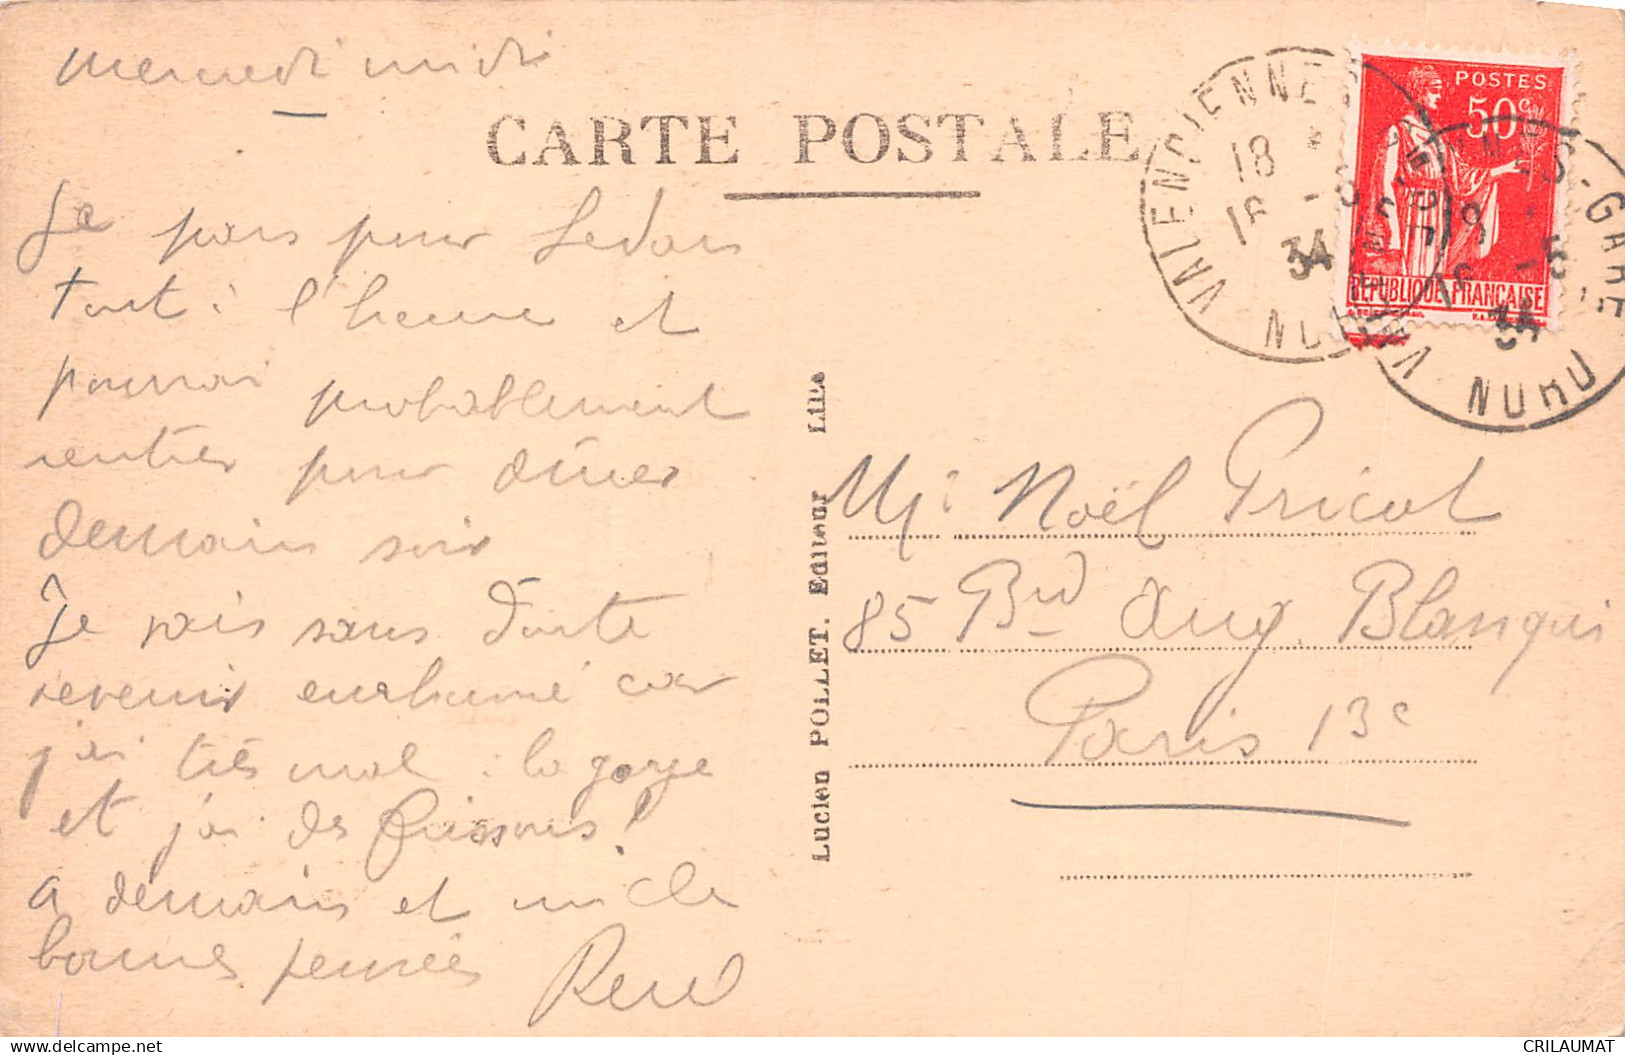 mercredi midi
CARTE POSTALE
Je pars pour Sedan
tout à l'heure et
pourrai probablement
rentrer pour dîner
demain soir
Je vais sans doute
revenir enrhumé car
j'ai très mal à la gorge
et j'ai des frissons!
a demain et mille
bonnes pensées
René
Lucien POLLET. Editeur LILLE
POSTES
50c
REPUBLIQUE FRANÇAISE
VALENCIENNES
18
16 -5
34
NORD
VALENCIENNES-GARE
18
16 -5
34
NORD
Mr Noël Pricot
85 Bd Aug Blanqui
Paris 13e
www.delcampe.net
CRILAUMAT